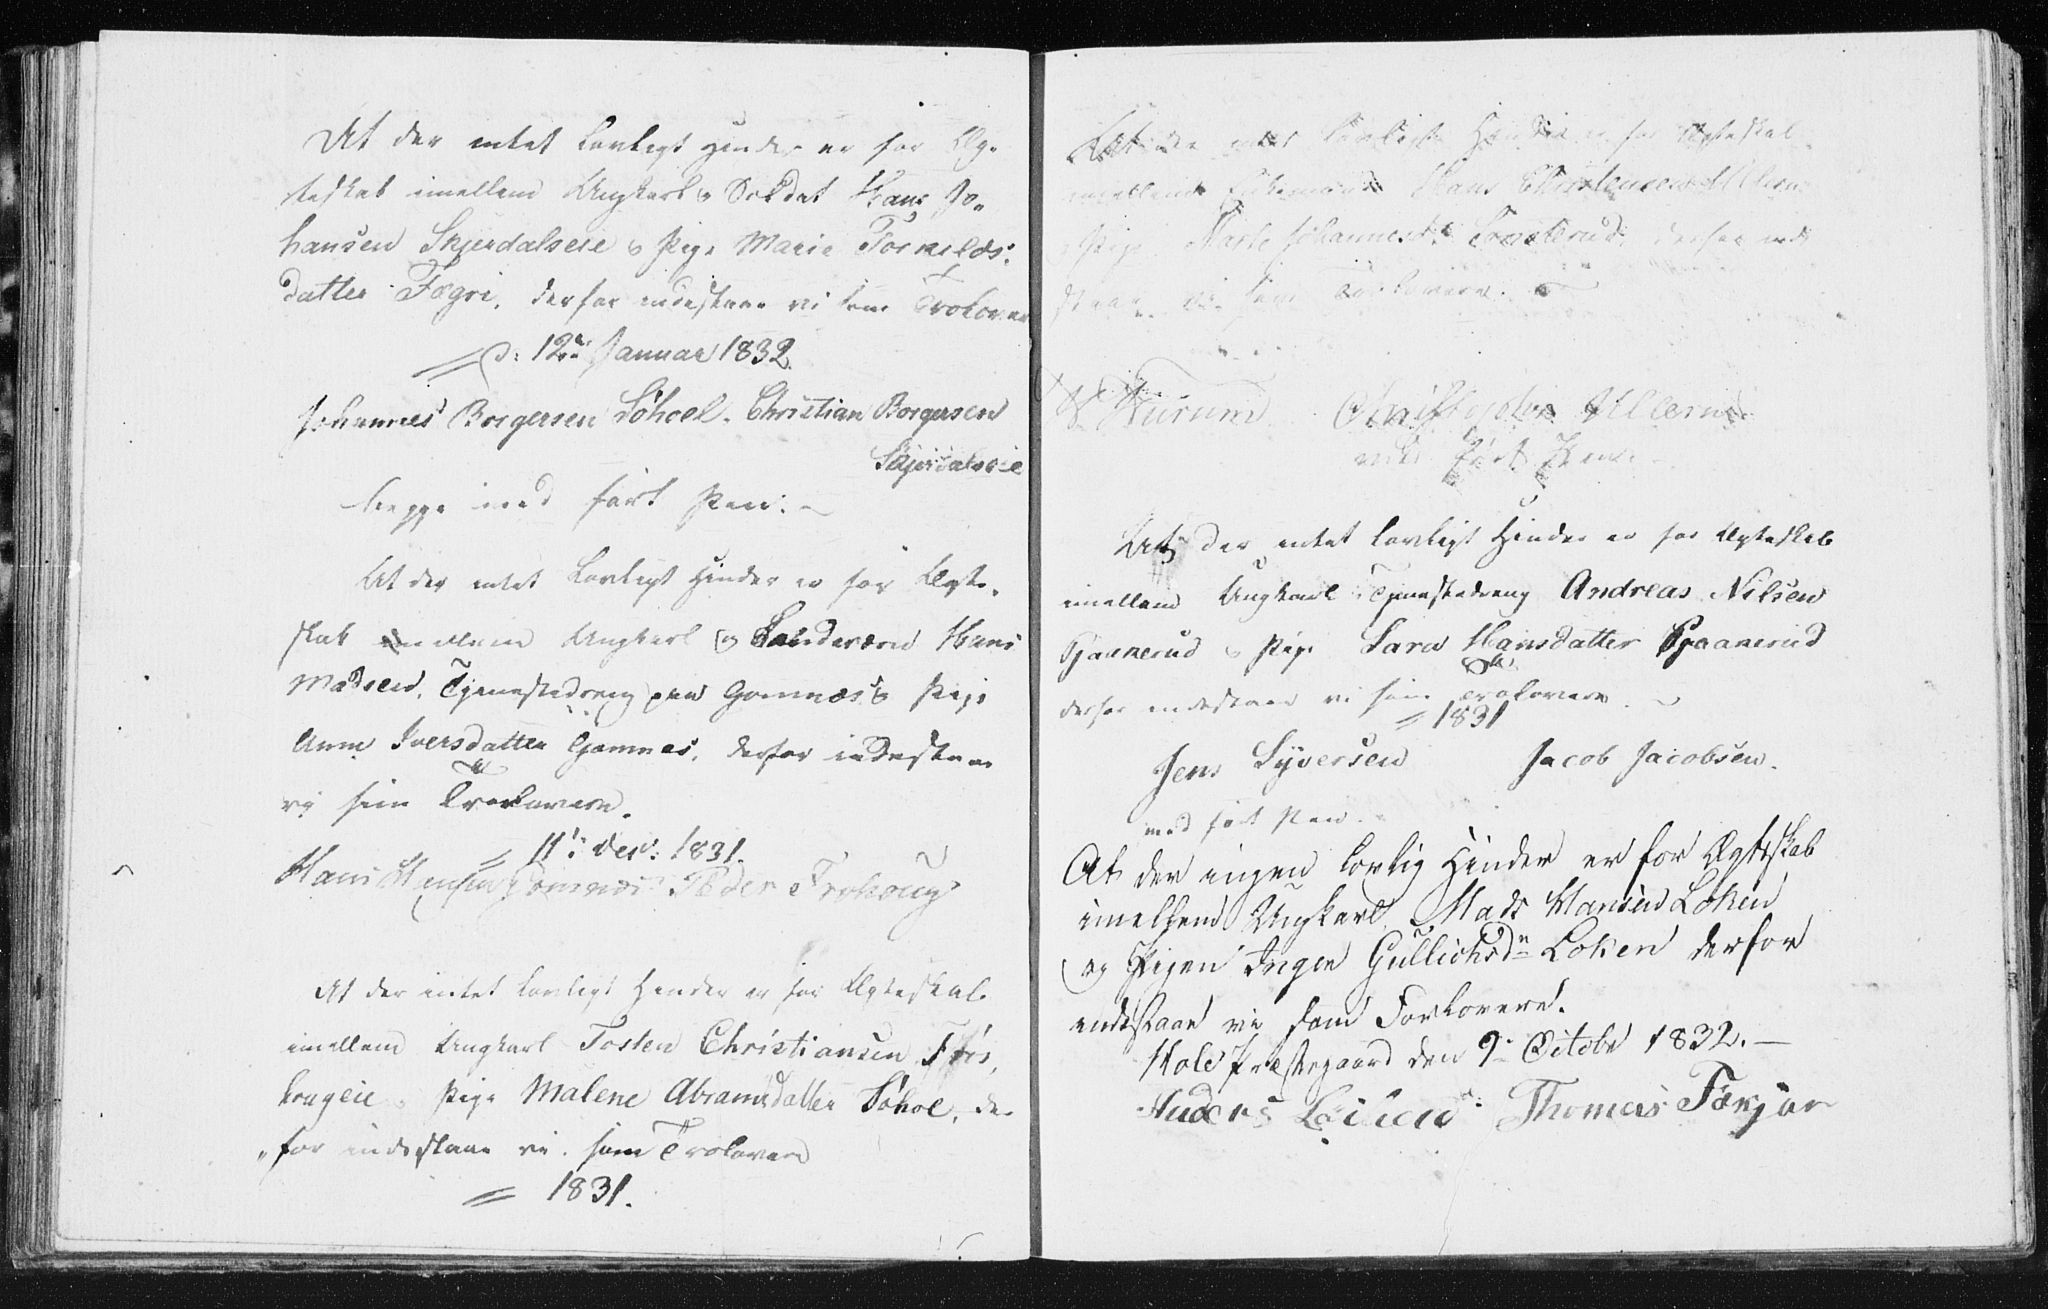 At der intet Lovligt Hinder er for Æg-
teskab imellem Ungkarl og Soldat Hans Jo-
hansen Skjerdalseie og Pige Marie Torkilds-
datter Fægri, derfor indestaae vi som Trolovere
d: 12te Januar 1832
Johannes Borgersen Søhoel. Christian Borgersen
Skjerdalseie
begge med ført Pen:
At der intet Lovligt Hinder er for Ægte-
skab imellem Ungkarl og Landværn Hans
Madsen, Tjenestedreng paa Gomnæs og Pige
Anne Iversdatter Gomnæs, derfor indestaae
vi som Trolovere.
11te Dec: 1831.
Hans Hansen Gomnæs Peder Frohoug
At der intet Lovligt Hinder er for Ægteskab
imellem Ungkarl Tosten Christiansen
Pige Malene Abramsdatter Søhoel, der
for indestaae vi som Trolovere
1831.
At der intet Lovligt Hinder er for Ægteskab
imellem Enkemand Hans Christensen Ullern
Pige Marte Johannesdr derfor inde
staae vi som Trolovere
Christopher Ullern
med ført Pen:
At der intet Lovligt Hinder er for Ægteskab
imellem Ungkarl Tjenestedreng Andreas Nilsen
Gjannerud og Pige Sara Hansdatter Gjaanerud
derfor indestaae vi som Trolovere
1831
Jens Syversen Jacob Jacobsen.
med ført Pen.
At der ingen lovlig Hinder er for Ægteskab
imellem Ungkarl Mads Hansen Loken
og Pigen Inger Gullichsdn Loken derfor
indestaae vi som Forlovere.
Hole Præstegaard den 9de Octobr 1832.
Anders Løken Thomas Fækjær